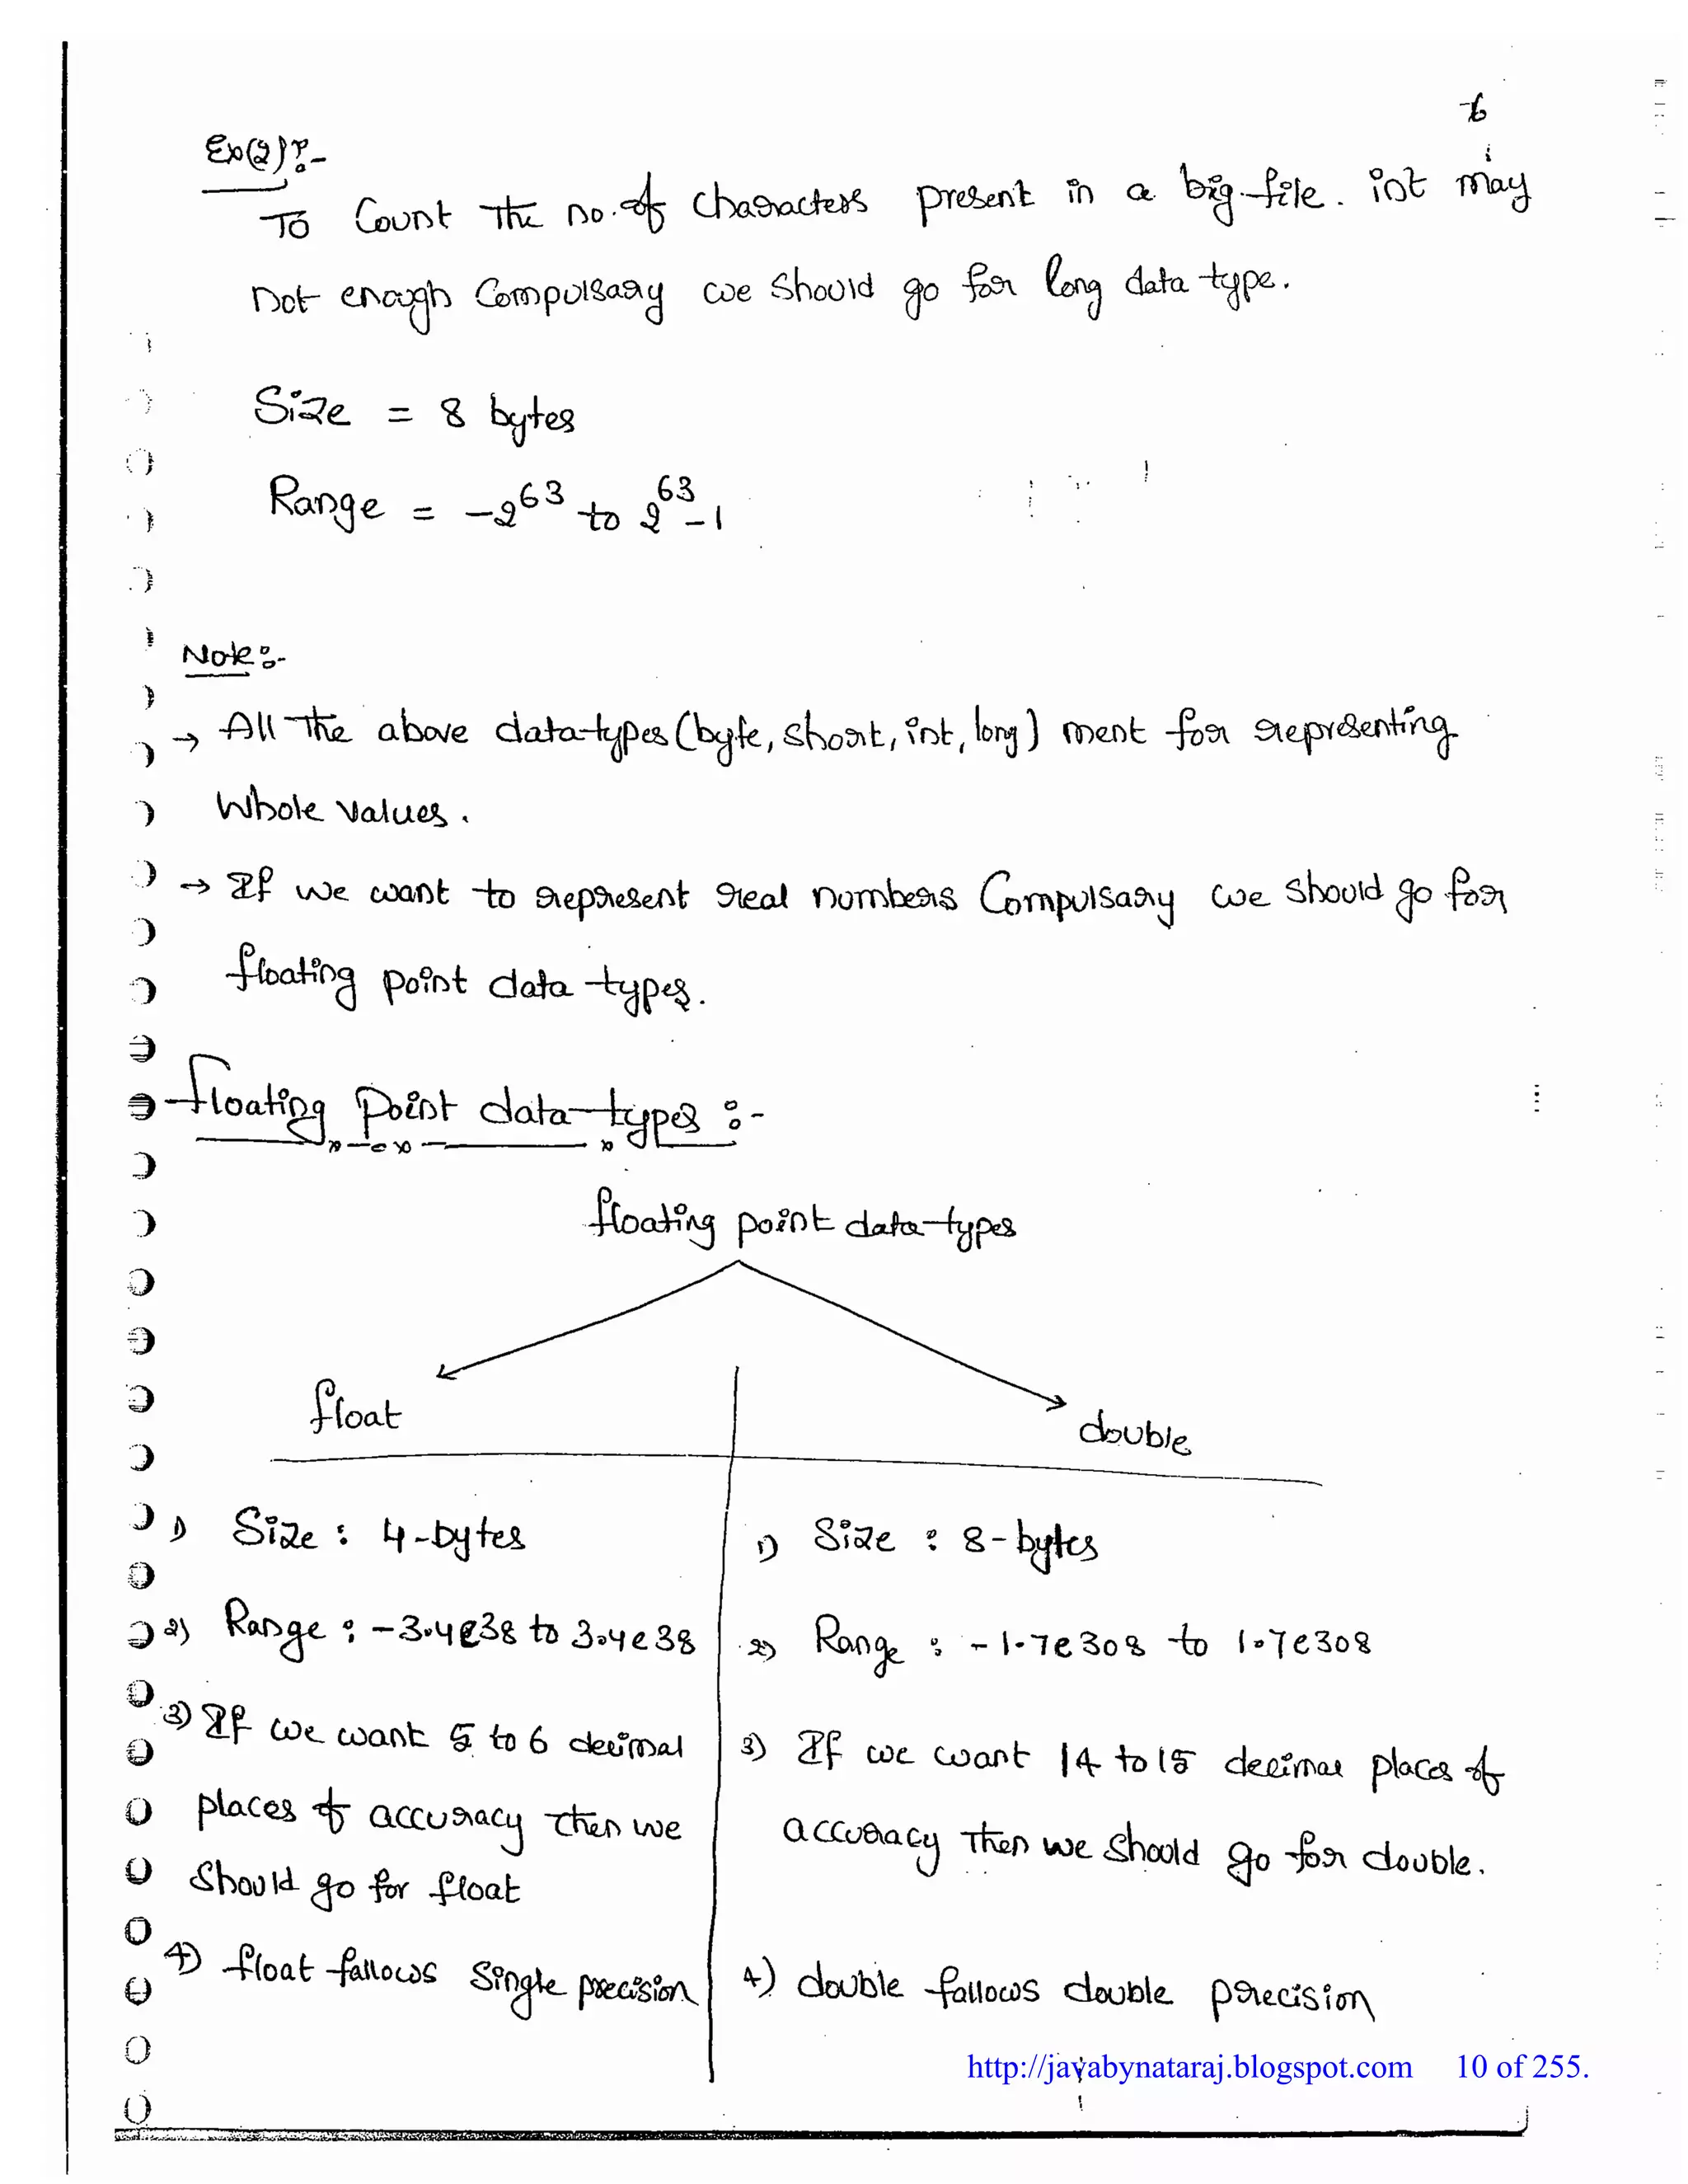 6
Ex(2):-
To Count The no. of characters present in a big file. int may
not enough Compulsary we should go for long data type.
Size = 8 bytes
Range = -2^63 to 2^63-1
Note:-
→ All The above data-types (byte, short, int, long) ment for representing
Whole values.
→ If we want to represent real numbers Compulsary we should go for
floating point data types.
floating point data-types :-
floating point data-types
float
double
1) Size : 4-bytes
2) Range : -3.4e38 to 3.4e38
3) If we want 5 to 6 decimal
places of accuracy then we
should go for float
4) float fallows single precision
1) Size : 8-bytes
2) Range : -1.7e308 to 1.7e308
3) If we want 14 to 15 decimal places of
accuracy Then we should go for double.
4) double fallows double precision
http://javabynataraj.blogspot.com 10 of 255.